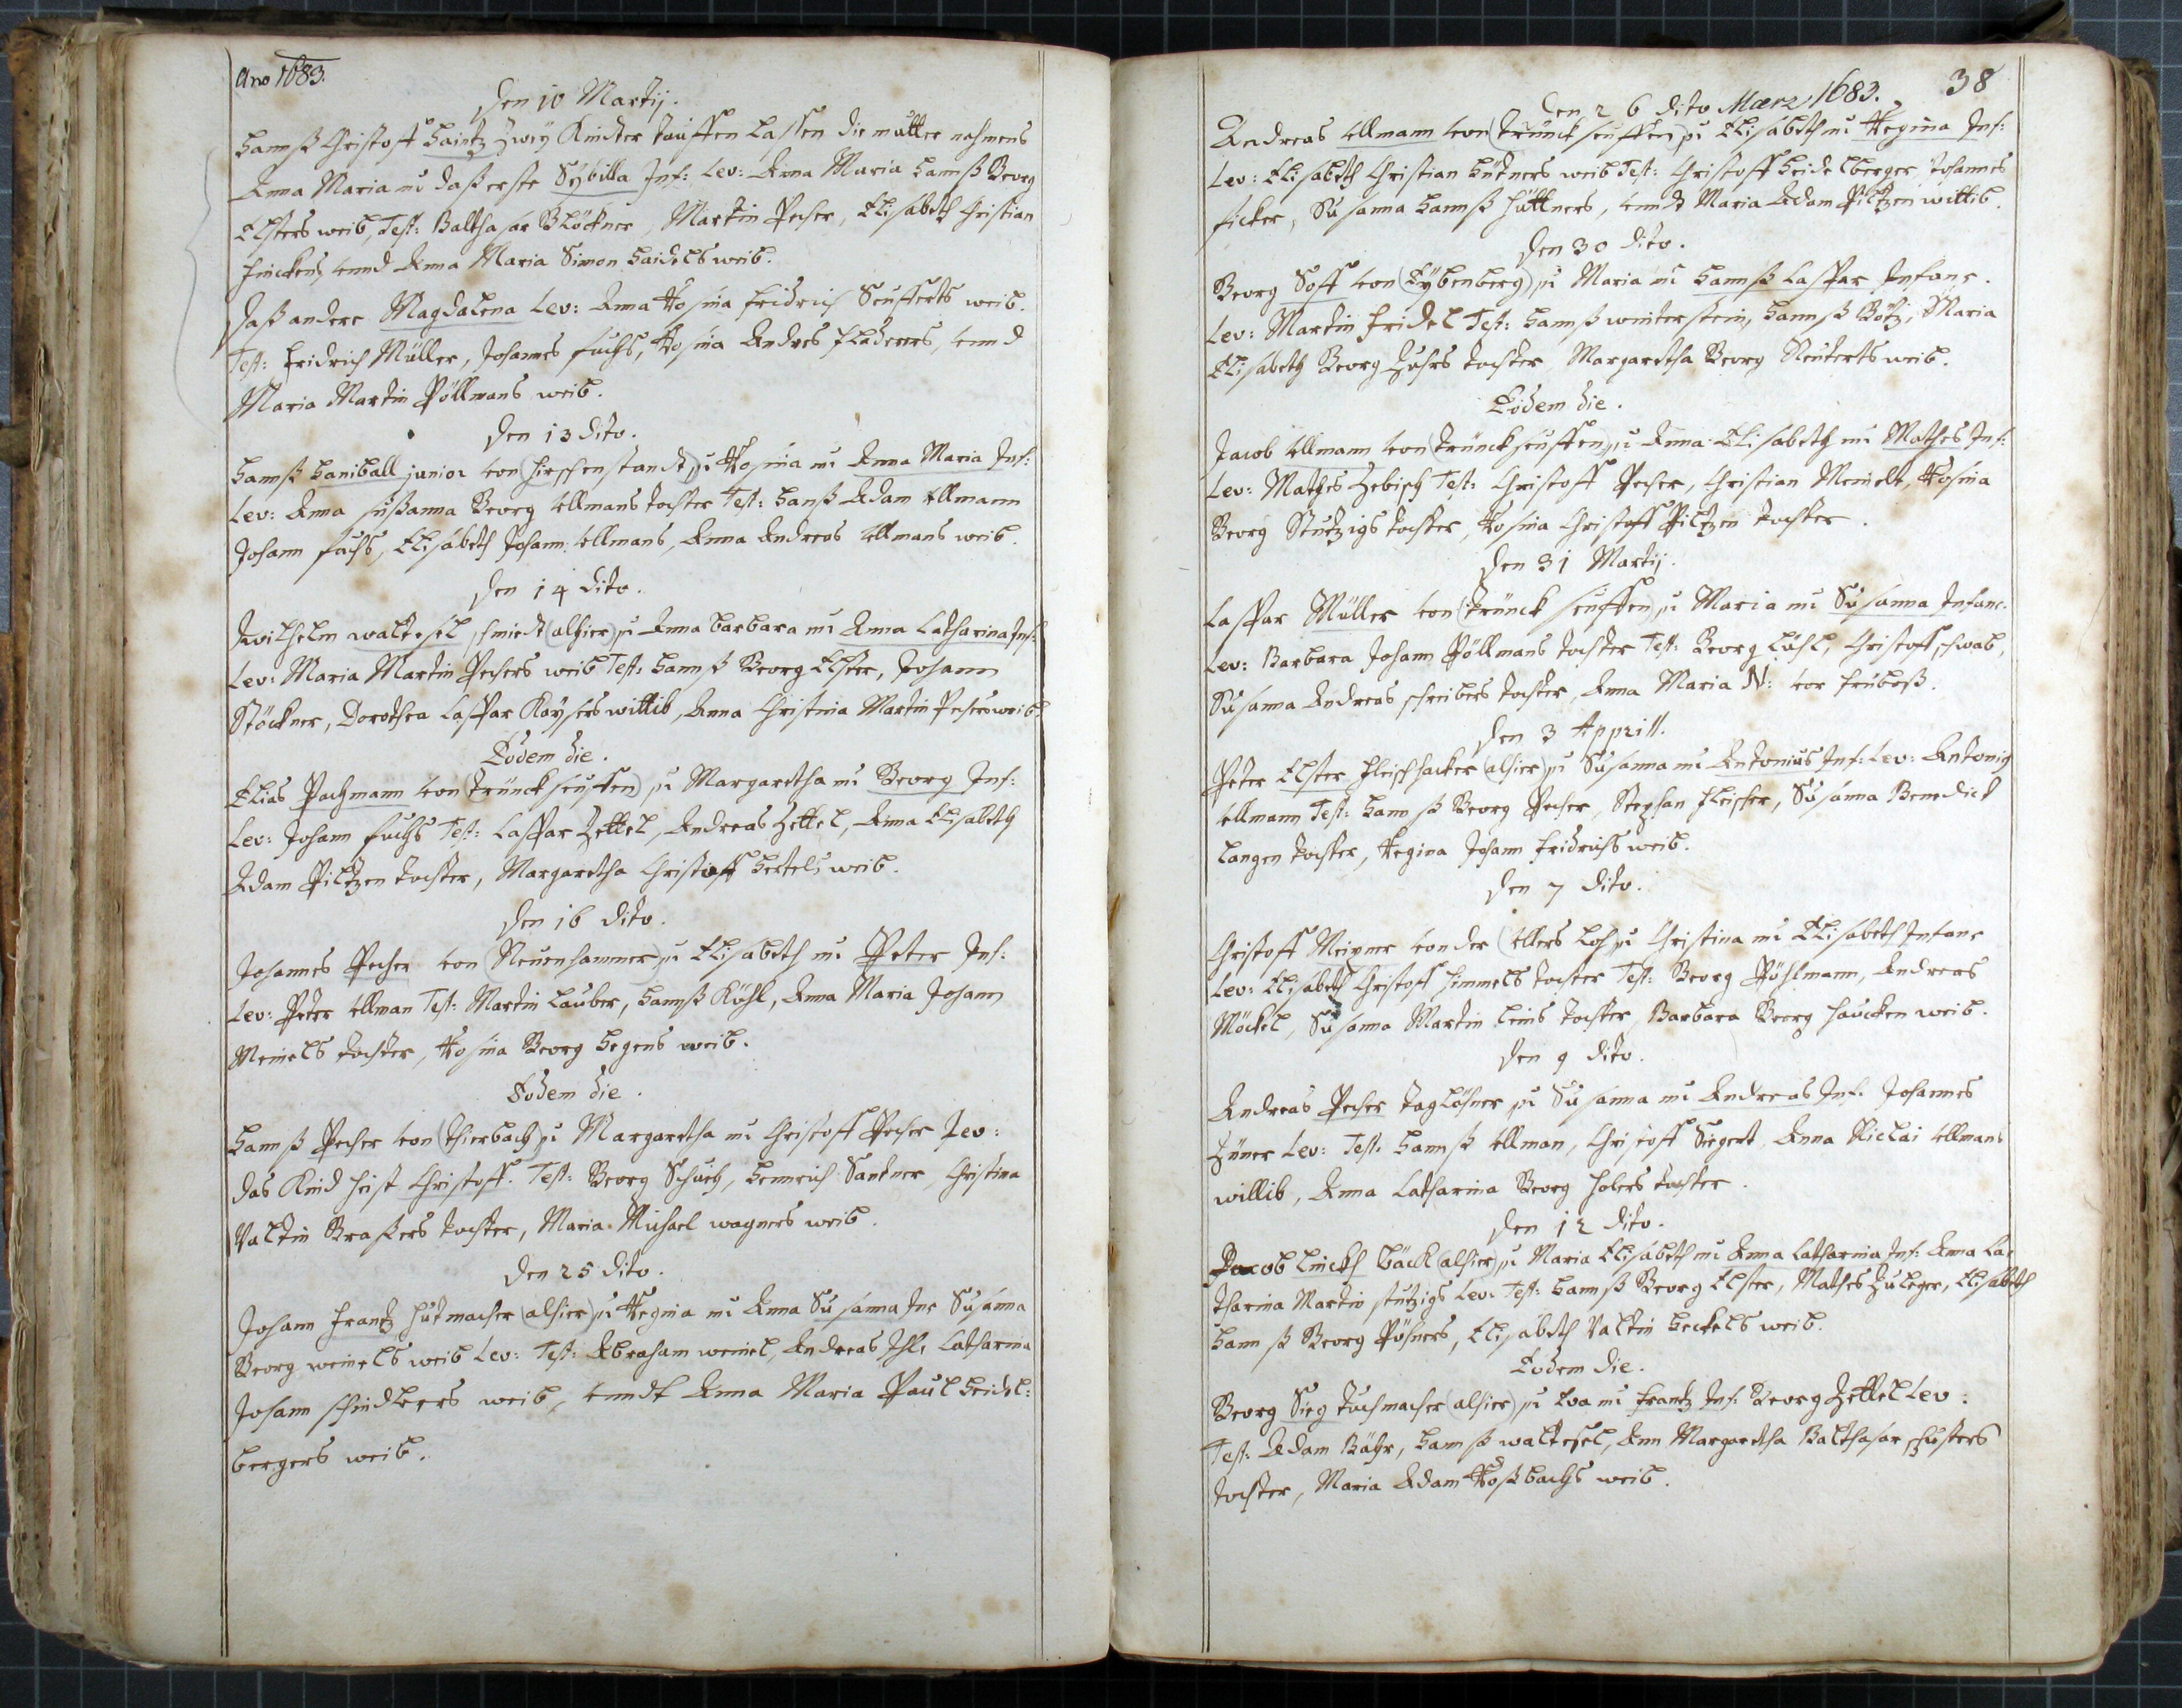 Ano 1683.
Den 10 Martij.
Hannß Christoff Haintz zwey Kinder tauffen Lassen die mutter nahmens
Anna Maria ni daß erste Sybilla Inf: Lev: Anna Maria Hannß Georg
Elsters weib, Test: Balthasar Glöckner, Martin Pecher, Elisabeth Christian
Finckens unnd Anna Maria Simon Haidels weib.
daß andere Magdalena Lev: Anna Rosina Fridrich Seufferts weib.
Test: Fridrich Müller, Johannes Fuchs, Rosina Andres Fladerers, unnd
Maria Martin Pöllmans weib.
Den 13 dito.
Hannß Haniball junior von (Hirschenstandt) pi Rosina ni Anna Maria Inf:
Lev: Anna sußanna Georg Ullmans tochter Test: Hanß Adam Ullmann
Johann Fuchs, Elisabeth Johann Ullmans, Anna Andreas Ullmans weib.
Den 14 dito.
Wilhelm waldesel schmidt (alhier) pi Anna barbara ni Anna Catharina Inf:
Lev: Maria Martin Pechers weib Test: Hannß Georg Elster, Johann
Stöckner, Dorothea Caspar Kaysers wittib, Anna Christina Martin Pechers weib.
Eodem die.
Elias Pachmann von (Trünckseuffen) pi Margaretha ni Georg Inf:
Lev: Johann Fuchs Test: Caspar Zettel, Andreas Zettel, Anna Elisabeth
Adam Piltzen tochter, Margaretha Christoff Hertels weib.
Den 16 dito.
Johannes Pecher von (Neuenhammer) pi Elisabeth ni Peter Inf:
Lev: Peter Ullman Test: Martin Lauber, Hannß Kühl, Anna Maria Johann
Meinels tochter, Rosina Georg Hegens weib.
Eodem die.
Hannß Pecher von (Thierbach) pi Margaretha ni Christoff Pecher Lev:
das Kind heist Christoff. Test: Georg Schuch, Heinrich Santner, Christina
Valtin Graßers tochter, Maria Michael wagners weib.
Den 25 dito.
Johann Frantz Hutmacher (alhier) pi Regina ni Anna Susanna Inf Susanna
Georg weinels weib Lev: Test: Abraham weinel, Andreas Ihl, Catharina
Johann schindlers weib, unndt Anna Maria Paul Heidel:
bergers weib.
38
Den 26 dito Mærz 1683.
Andreas Ullmann von (Trünckseuffen) pi Elisabeth ni Regina Inf:
Lev: Elisabeth Christian Hütners weib Test: Christoff Heidelberger, Johannes
ficker, Susanna Hannß Hüttners, unndt Maria Adam Piltzen wittib.
Den 30 dito.
Georg Soff von (Eybenberg) pi Maria ni Hannß Caspar Infans.
Lev: Martin Fridel Test: Hannß winterstein, Hannß Götz, Maria
Elisabeth Georg Zuhrs tochter Margaretha Georg Neuderts weib.
Eodem die.
Jacob Ullmann von (Trünckseuffen) pi Anna Elisabeth ni Mathes Inf:
Lev: Mathes Hebisch Test: Christoff Pecher, Christian Meinelt, Rosina
Georg Stutzigs tochter, Rosina Christoff Piltzen tochter.
Den 31 Martij.
Caspar Müller von (Trünck seuffen) pi Maria ni Susanna Infans.
Lev: Barbara Johann Pöllmans tochter Test: Georg Lühl, Christoff schwab,
Susanna Andreas schreibers tochter, Anna Maria N: von Frübeß.
Den 3 Apprill.
Peter Elster Fleischhacker (alhier) pi Susanna ni Antonius Inf: Lev: Antonig
Ullmann Test: Hannß Georg Pecher, Stephan Fleischer, Susanna Benedict
Langen tochter, Regina Johann Fridrichs weib.
Den 7 dito.
Christoff Meixner von der (Ullers Loh) pi Christina ni Elisabeth Infans
Lev: Elisabeth Christoff Himmels tochter Test: Georg Pöhlmann, Andreas
Möckel, Susanna Martin Leins tochter, Barbara Georg Haucken weib.
Den 9 dito.
Andreas Pecher taglöhner pi Susanna ni Andreas Inf: Johannes
Züner Lev: Test: Hannß Ullman, Christoff Siegert, Anna Niclai Ullmans
willib, Anna Catharina Georg Hebers tochter.
Den 12 dito.
Jacob Linckh Bäck (alhier) pi Maria Elisabeth ni Anna Catharina Inf: Anna Ca
tharina Martin stutzigs Lev: Test: Hannß Georg Elster, Mathes Zuleger, Elisabeth
Hannß Georg Pöhners, Elisabeth Valtin Heckels weib.
Eodem die.
Georg Sieg Tuchmacher (alhier) pi Eva ni Frantz Inf: Georg Zettel Lev:
Test: Adam Bähr, Hannß waldesel, Ann Margaretha Balthasar schusters
tochter, Maria Adam Roßbachs weib.